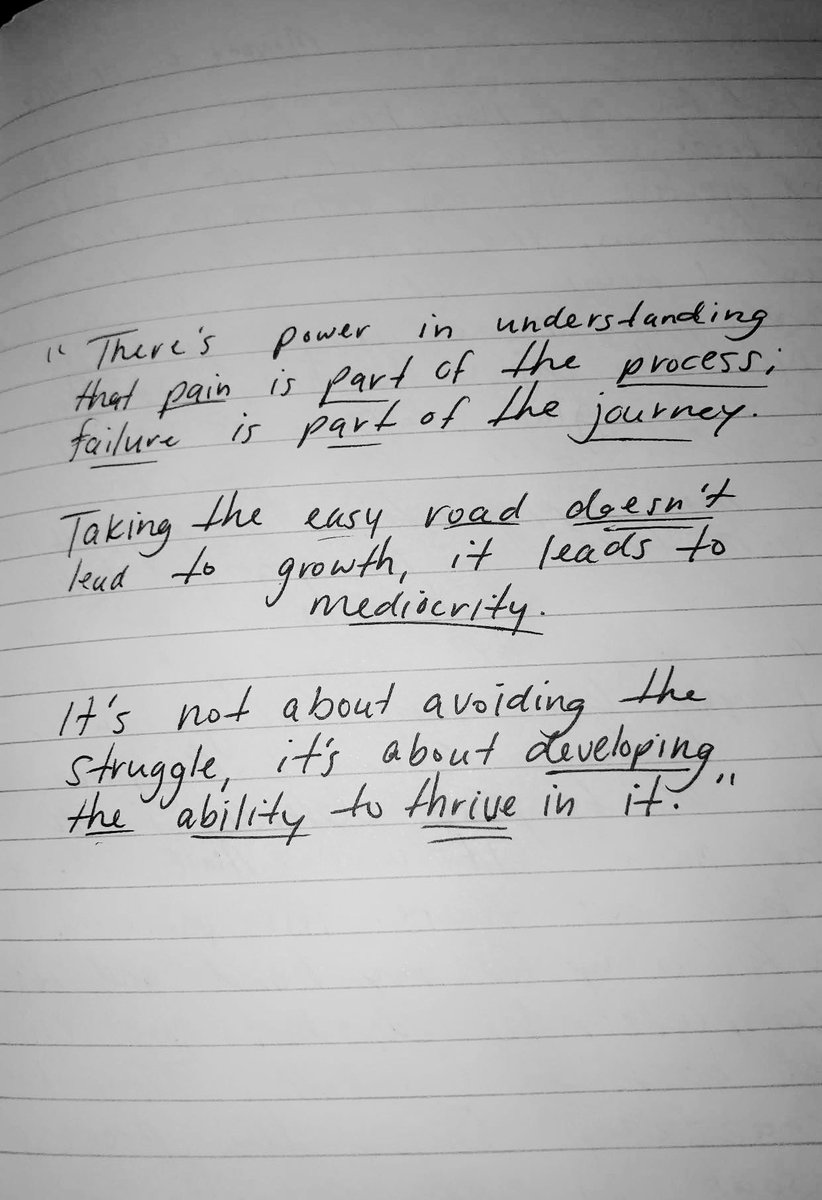 "There's power in understanding
that pain is part of the process;
failure is part of the journey.
Taking the easy road doesn't
lead to growth, it leads to
mediocrity.
It's not about avoiding the
struggle, it's about developing
the ability to thrive in it."